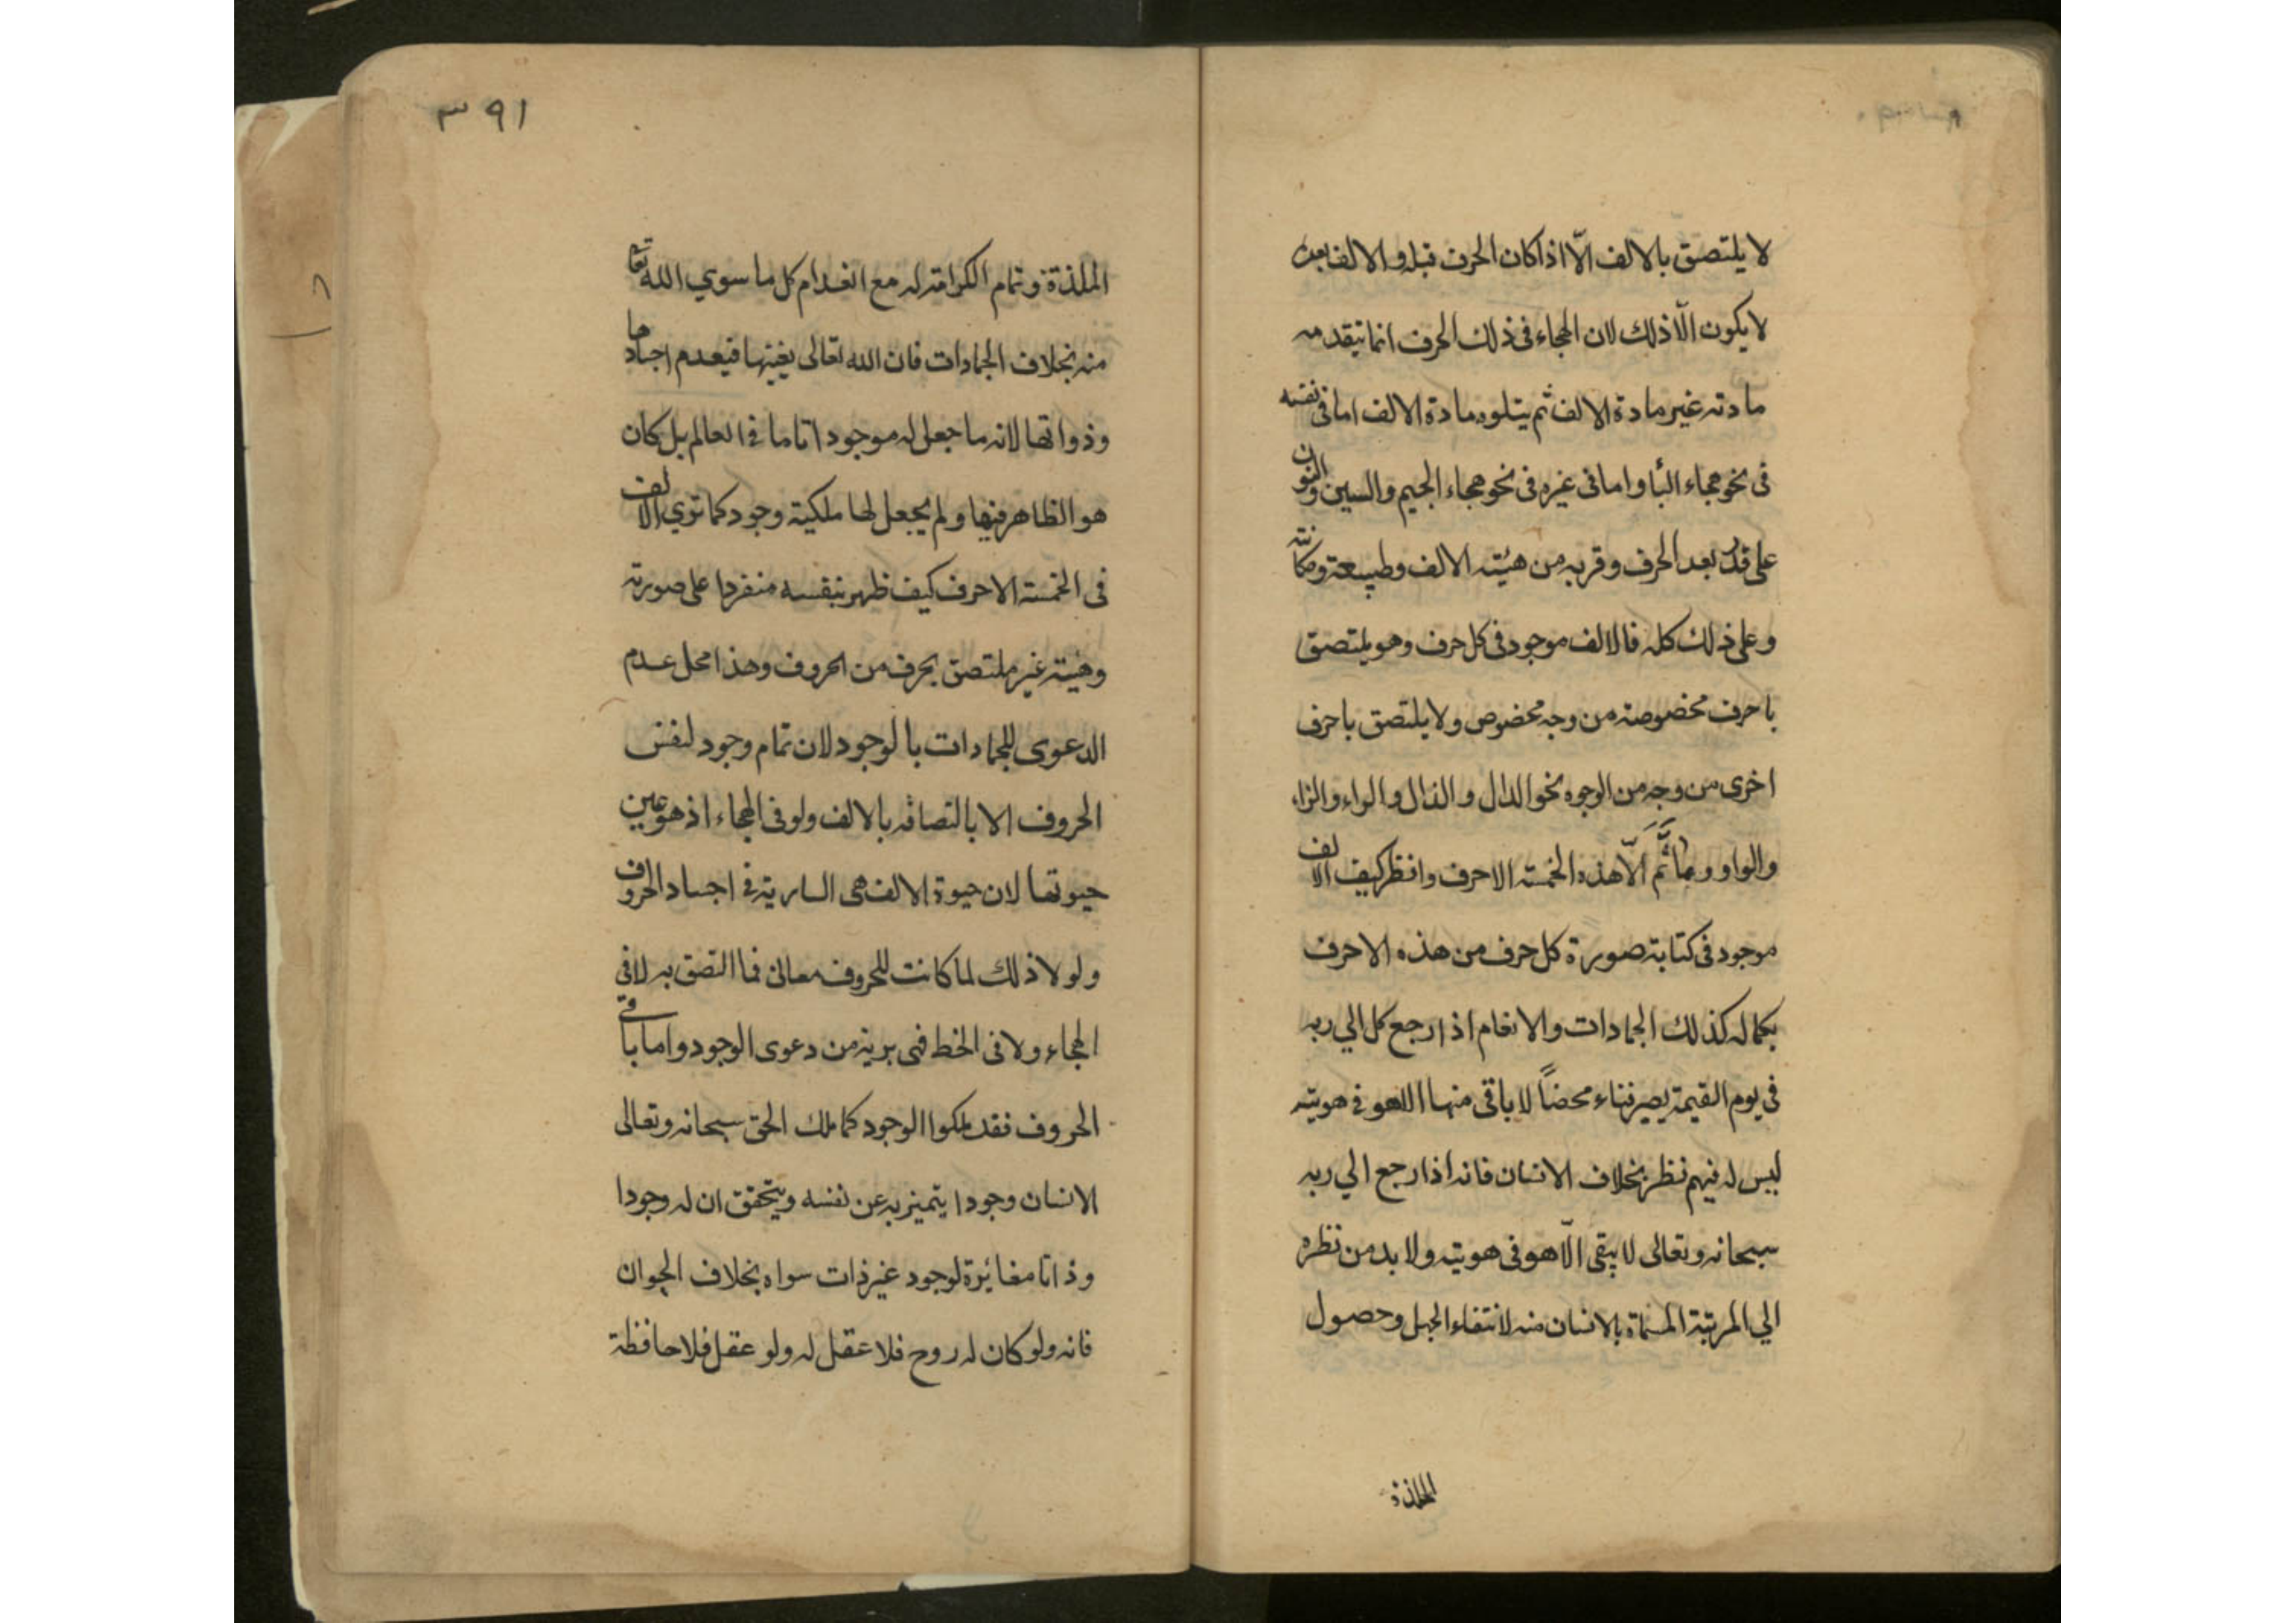 لا يلتصق بالالف الّا اذا كان الحرف قبله والالف بعده
لا يكون الّا ذلك لان الهجاء فى ذلك الحرف انما يتقدمه
مادته غير مادة الالف ثم يتلوه مادة الالف اما فى نفسه
فى نحو هجاء البا واما فى غيره فى نحو هجاء الجيم والسين والنون
على قدر بعد الحرف وقربه من هيئته الالف وطبيعة ومكانته
وعلى ذلك كله فالالف موجود فى كل حرف وهو يلتصق
باحرف مخصوصة من وجه مخصوص ولا يلتصق باحرف
اخرى من وجه من الوجوه نحو الدال والذال والراء والزاء
والواو وما ثَمَّ الّا هذه الخمسة الاحرف وانظر كيف الالف
موجود فى كتابة صورة كل حرف من هذه الاحرف
بكماله كذلك الجمادات والانعام اذا رجع كل الي ربه
فى يوم القيمة يصير فناء محضاً لا باقى منها الا هو فى هويته
ليس له فيهم نظر بخلاف الانسان فانه اذا رجع الي ربه
سبحانه وتعالى لا يبقى الّا هو فى هويته ولا بد من نظره
الي المرتبة المسماة بالانسان منه لانتفاء الجهل وحصول
الملذة
٣٩١
الملذة وتمام الكرامة له مع انعدام كل ما سوي الله تعا
منه بخلاف الجمادات فان الله تعالى يفنيها فيعدم اجسادها
وذواتها لانه ما جعل له موجودا تاما فى العالم بل كان
هو الظاهر فيها ولم يجعل لها ملكية وجود كما تري الالف
فى الخمسة الاحرف كيف ظهر بنفسه منفردا على صورته
وهيئته غير ملتصق بحرف من الحروف وهذا محل عدم
الدعوى للجمادات بالوجود لان تمام وجود لنفس
الحروف الا بالتصاقه بالالف ولو فى الهجاء اذ هو عين
حيوتها لان حيوة الالف هى السارية فى اجساد الحروف
ولولا ذلك لما كانت للحروف معانى فما التصق به لا فى
الهجاء ولا فى الخط فهى برية من دعوى الوجود واما باقى
الحروف فقد ملكوا الوجود كما ملك الحق سبحانه وتعالى
الانسان وجودا يتميز به عن نفسه ويتحقق ان له وجودا
وذاتا مغايرة لوجود غير ذات سواه بخلاف الحيوان
فانه ولو كان له روح فلا عقل له ولو عقل فلا حافظة